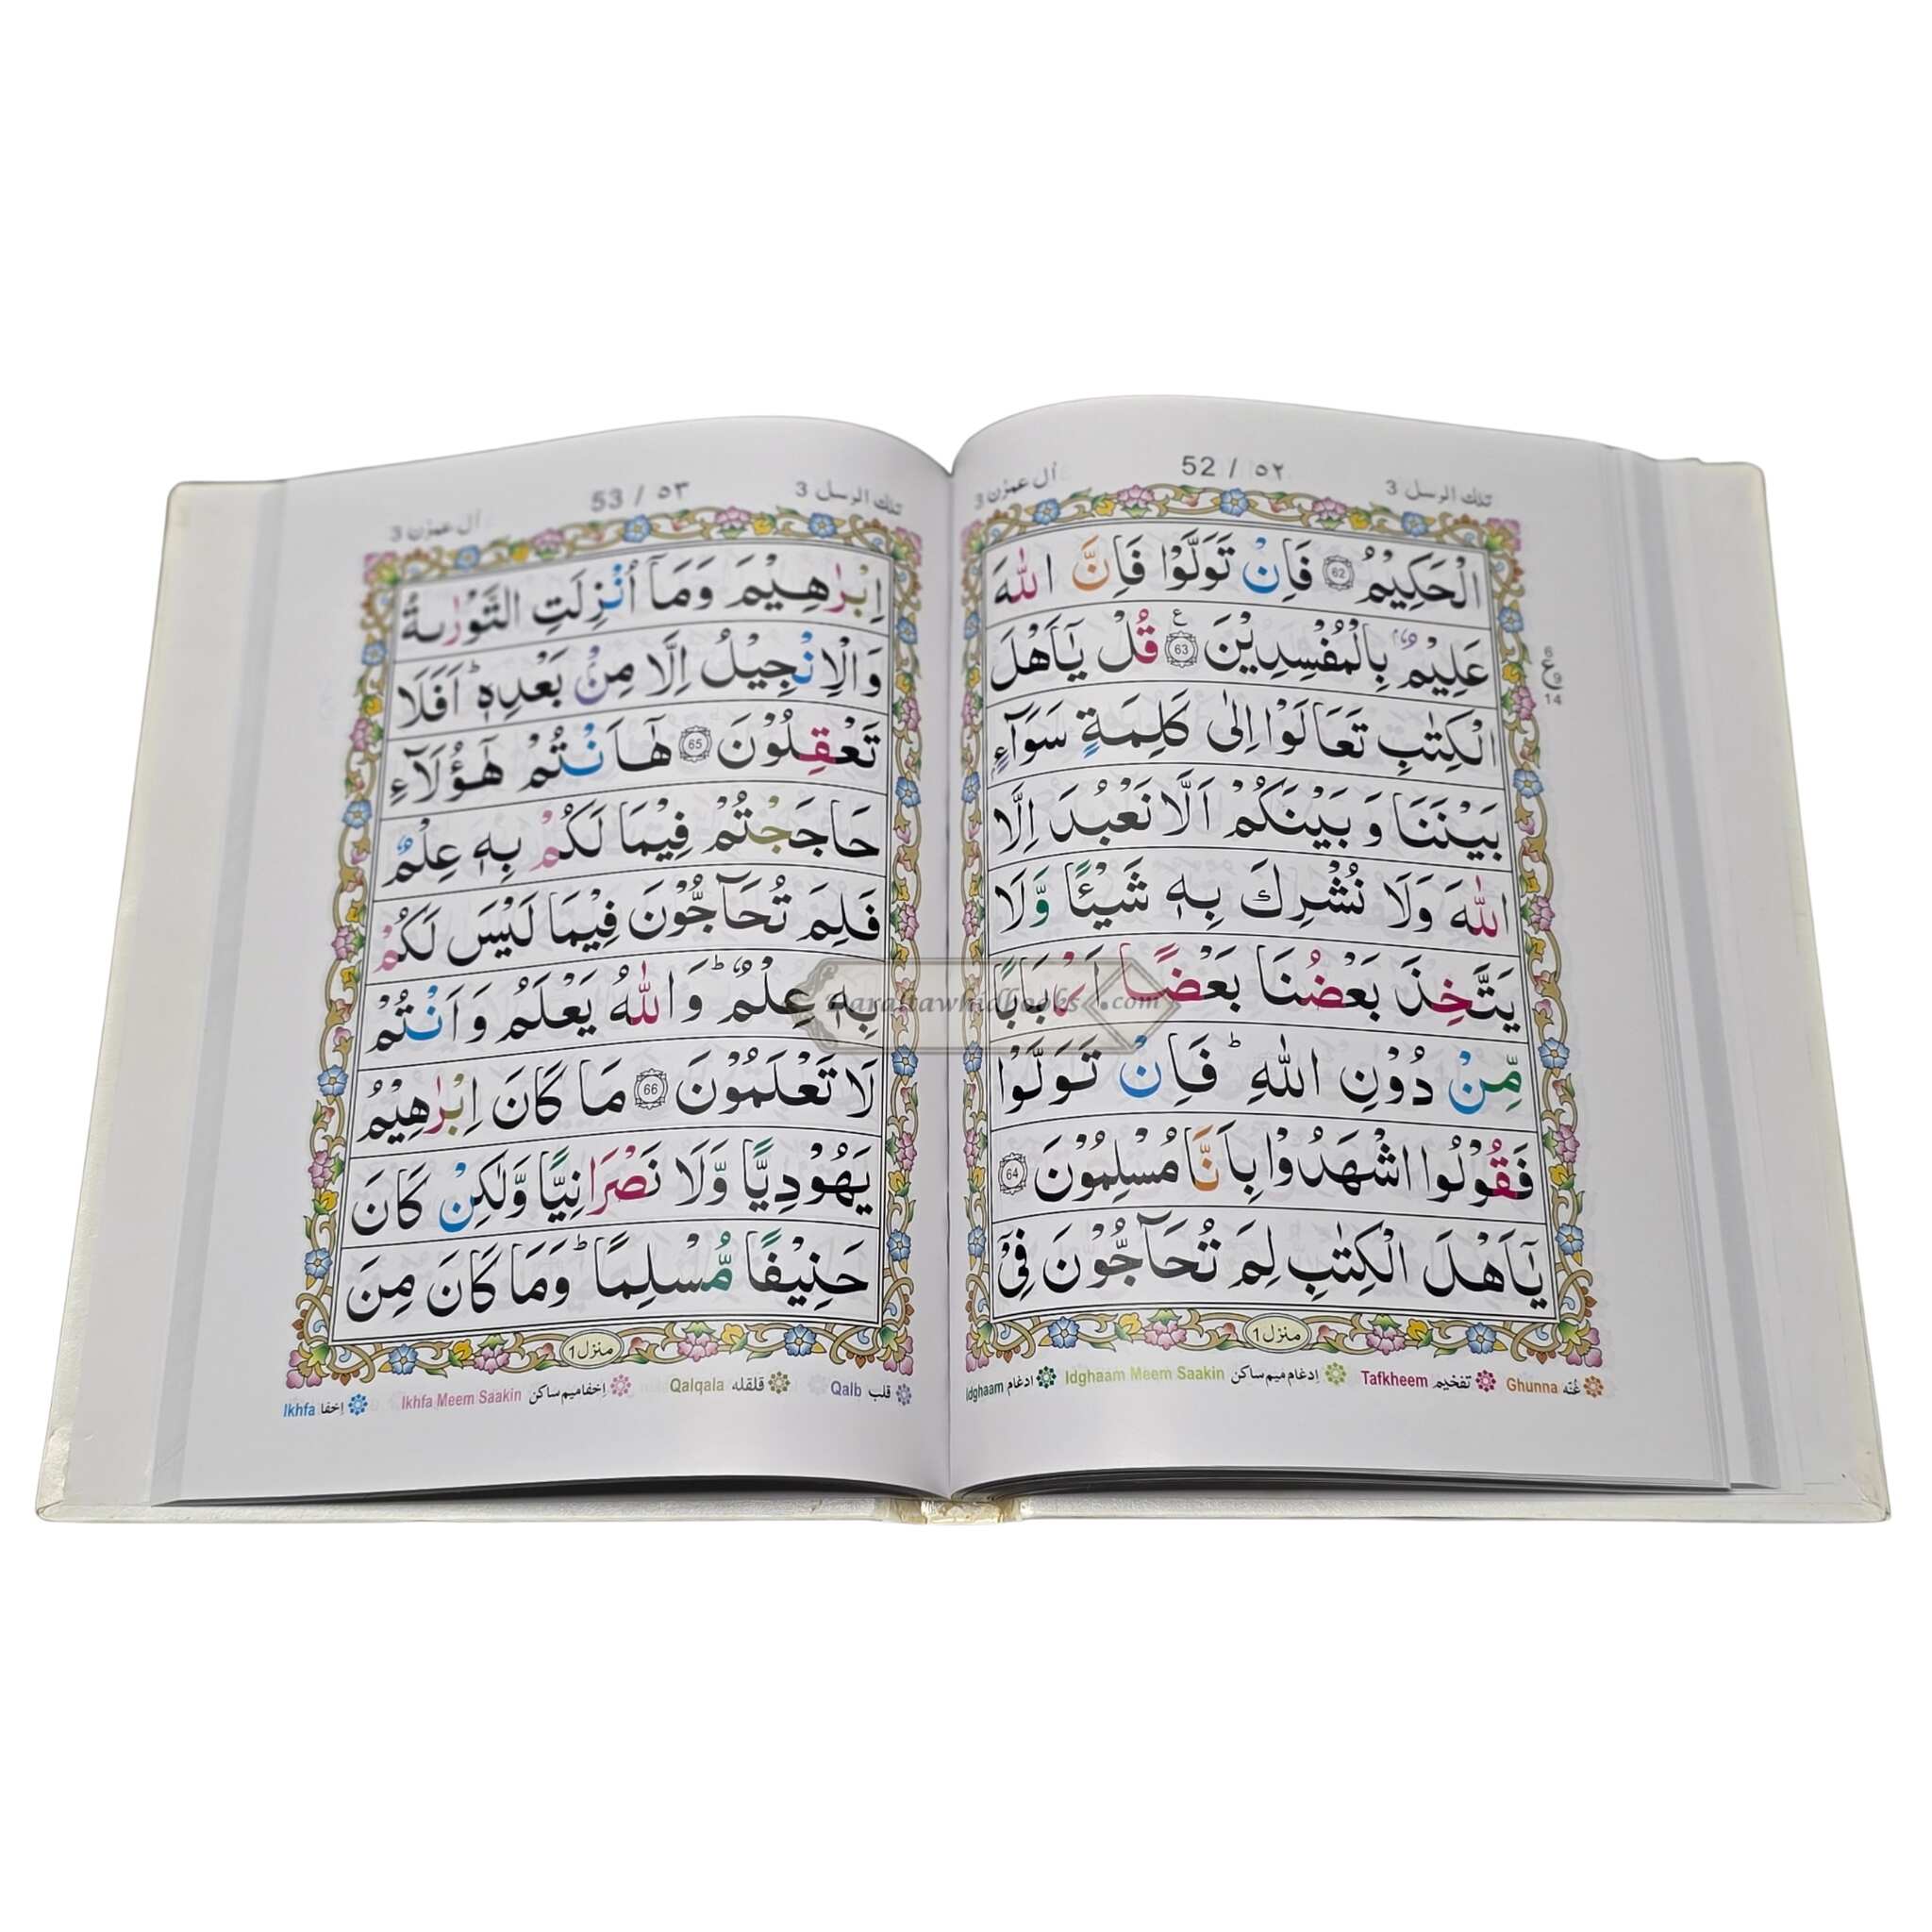 تلك الرسل 3
52 / ٥٢
اٰل عمرٰن 3
الْحَكِيْمُ 62 فَاِنْ تَوَلَّوْا فَاِنَّ اللّٰهَ
عَلِيْمٌۢ بِالْمُفْسِدِيْنَ 63 ع قُلْ يٰٓاَهْلَ
6
ع
9
14
الْكِتٰبِ تَعَالَوْا اِلٰى كَلِمَةٍ سَوَآءٍۭ
بَيْنَنَا وَ بَيْنَكُمْ اَلَّا نَعْبُدَ اِلَّا
اللّٰهَ وَلَا نُشْرِكَ بِهٖ شَيْـًٔا وَّلَا
يَتَّخِذَ بَعْضُنَا بَعْضًا اَرْبَابًا
مِّنْ دُوْنِ اللّٰهِ ؕ فَاِنْ تَوَلَّوْا
فَقُوْلُوا اشْهَدُوْا بِاَنَّا مُسْلِمُوْنَ 64
يٰٓاَهْلَ الْكِتٰبِ لِمَ تُحَآجُّوْنَ فِيْٓ
منزل 1
غُنّه Ghunna تفخيم Tafkheem اِدغام ميم ساكن Idghaam Meem Saakin ادغام Idghaam
تلك الرسل 3
53 / ٥٣
اٰل عمرٰن 3
اِبْرٰهِيْمَ وَمَآ اُنْزِلَتِ التَّوْرٰىةُ
وَالْاِنْجِيْلُ اِلَّا مِنْۢ بَعْدِهٖ ؕ اَفَلَا
تَعْقِلُوْنَ 65 هٰٓاَنْتُمْ هٰٓؤُلَآءِ
حَاجَجْتُمْ فِيْمَا لَكُمْ بِهٖ عِلْمٌ
فَلِمَ تُحَآجُّوْنَ فِيْمَا لَيْسَ لَكُمْ
بِهٖ عِلْمٌ ؕ وَاللّٰهُ يَعْلَمُ وَاَنْتُمْ
لَا تَعْلَمُوْنَ 66 مَا كَانَ اِبْرٰهِيْمُ
يَهُوْدِيًّا وَّلَا نَصْرَانِيًّا وَّلٰكِنْ كَانَ
حَنِيْفًا مُّسْلِمًا ؕ وَمَا كَانَ مِنَ
منزل 1
قلب Qalb قلقله Qalqala اِخفا ميم ساكن Ikhfa Meem Saakin اِخفا Ikhfa
daraltawhidbooks.com